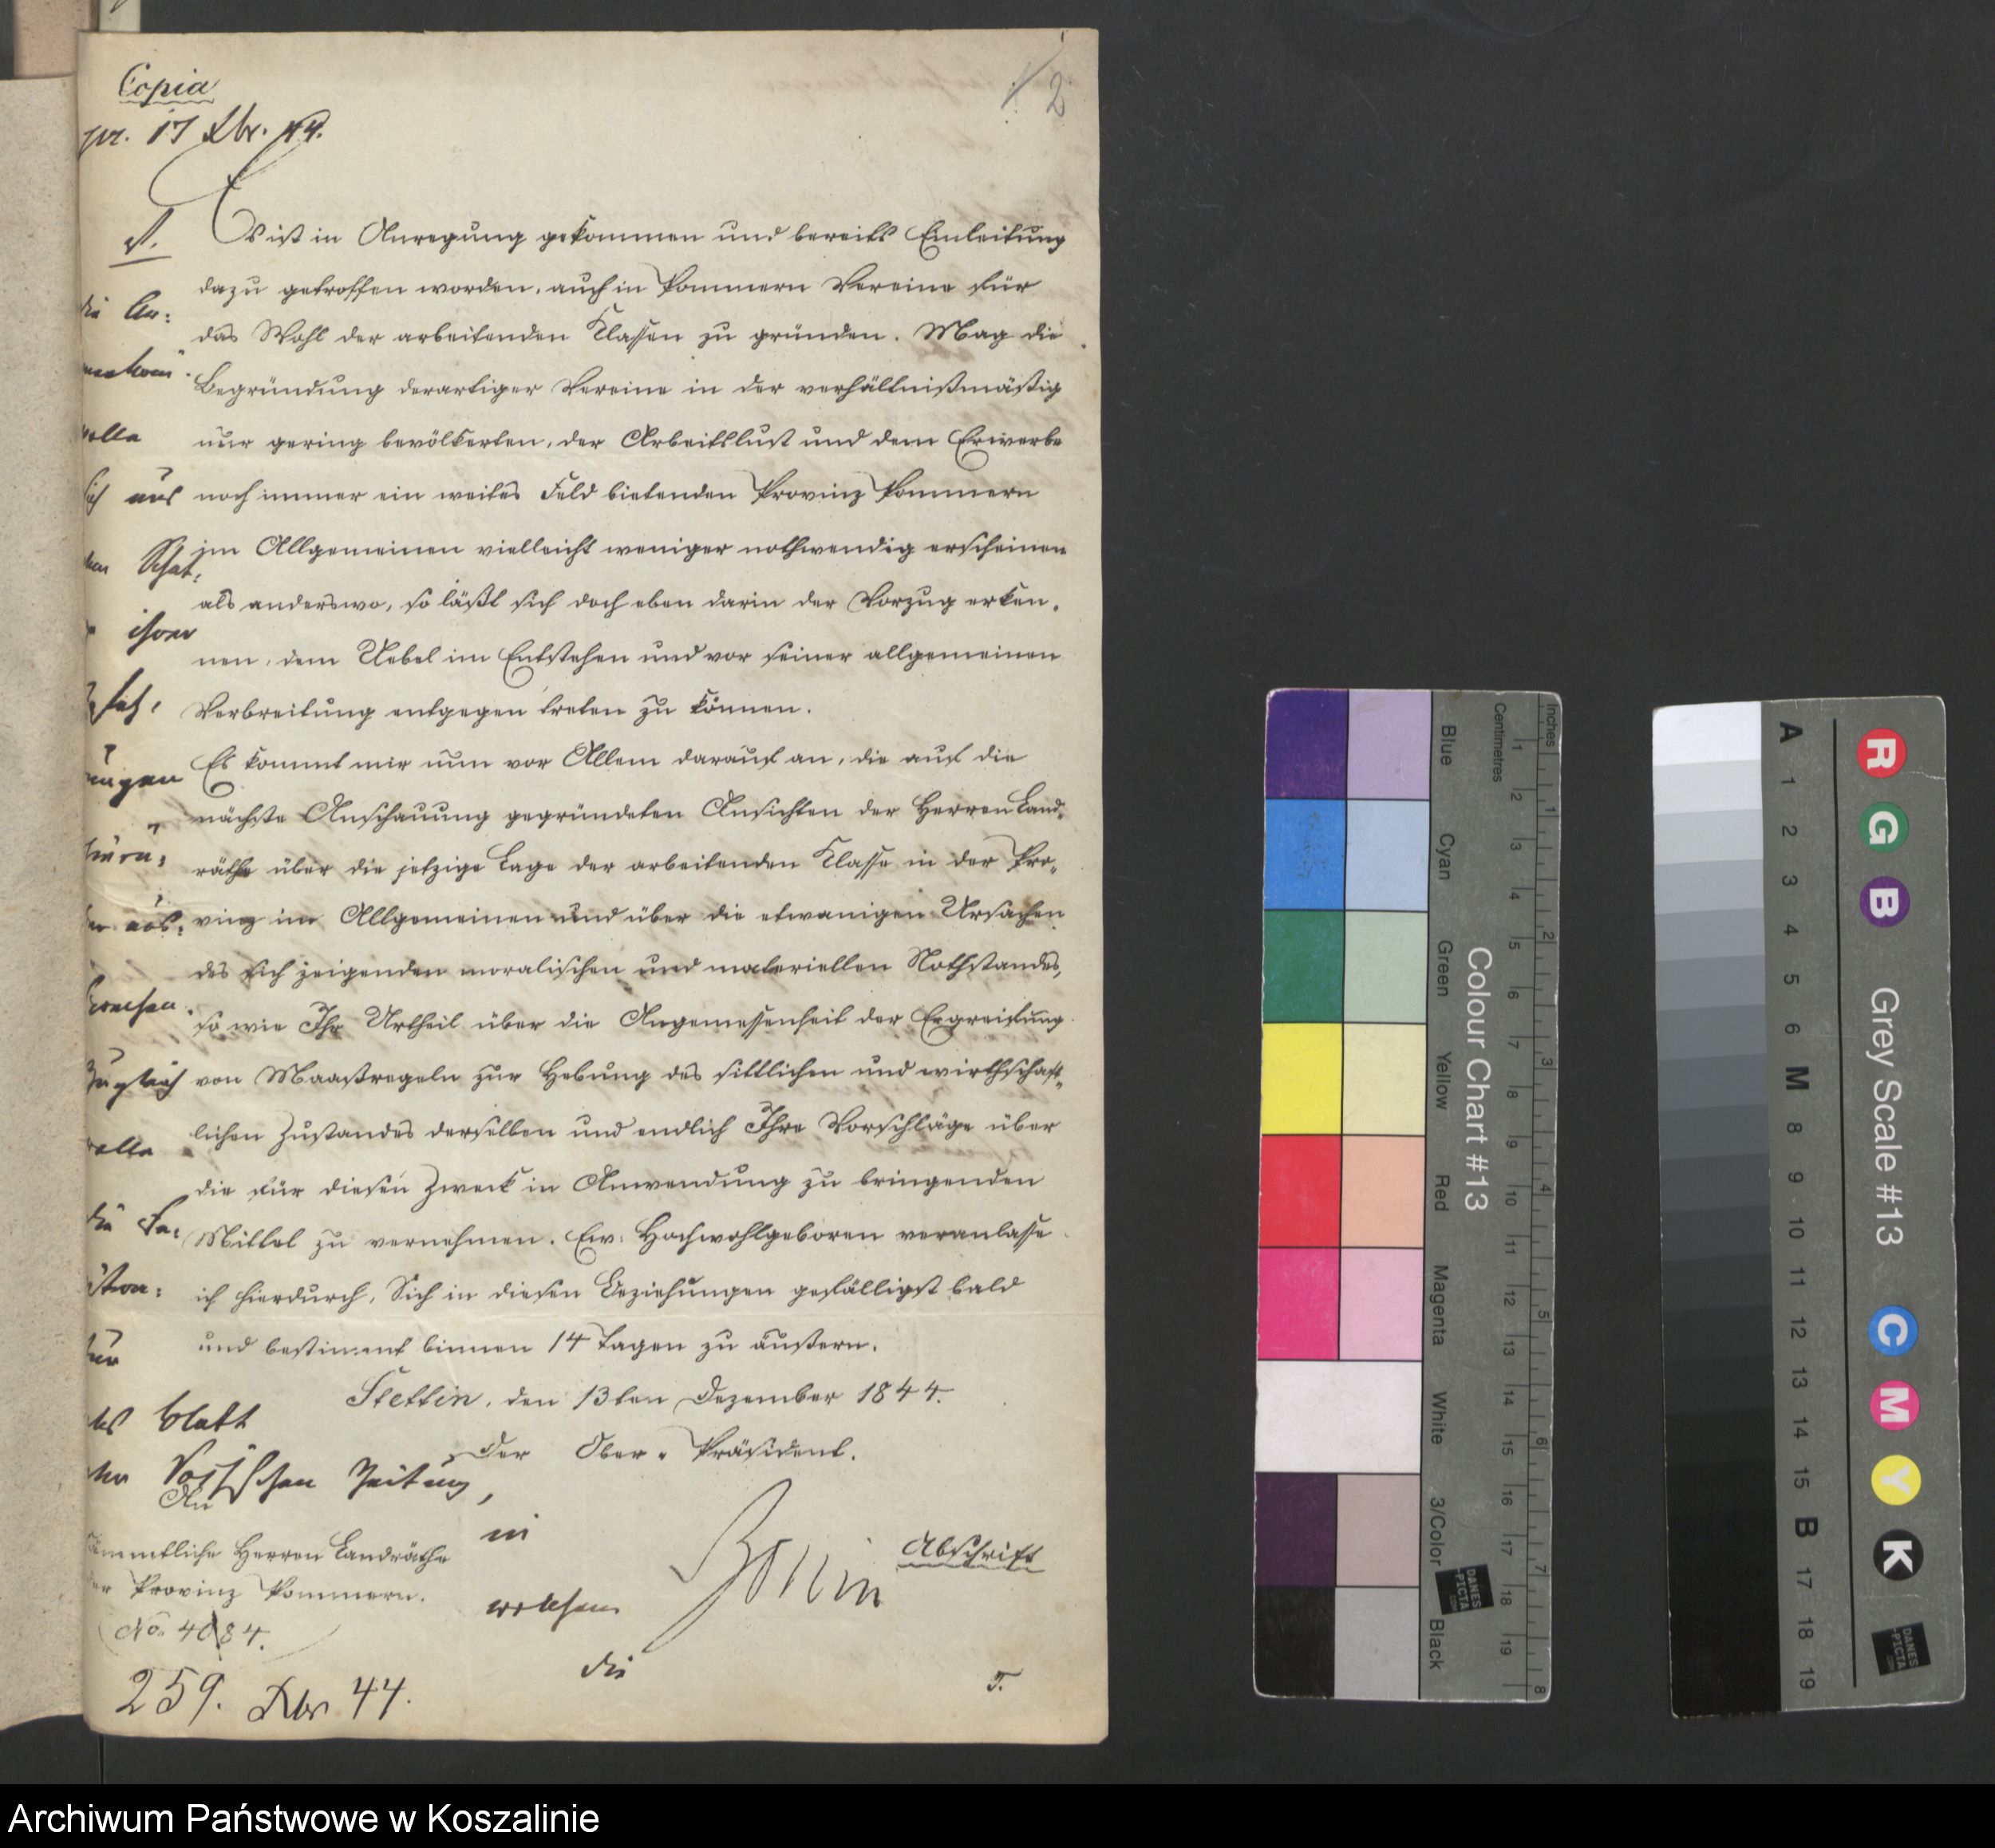 Copia
2
pr. 17 Xbr. 44.
Es ist in Anregung gekommen und bereits Einleitung
dazu getroffen worden, auch in Pommern Vereine für
das Wohl der arbeitenden Klassen zu gründen. Mag die
Begründung derartiger Vereine in der verhältnißmäßig
nur gering bevölkerten, der Arbeitslust und dem Erwerbe
noch immer ein weites Feld bietenden Provinz Pommern
im Allgemeinen vielleicht weniger nothwendig erscheinen
als anderswo, so läßt sich doch eben darin der Vorzug erken-
nen, dem Uebel im Entstehen und vor seiner allgemeinen
Verbreitung entgegen treten zu können.
Es kommt mir nun vor Allem darauf an, die auf die
nächste Anschauung gegründeten Ansichten der Herren Land-
räthe über die jetzige Lage der arbeitenden Klasse in der Pro-
vinz im Allgemeinen und über die etwanigen Ursachen
des sich zeigenden moralischen und materiellen Nothstandes,
so wie Ihr Urtheil über die Angemessenheit der Ergreifung
von Maaßregeln zur Hebung des sittlichen und wirthschaft-
lichen Zustandes derselben und endlich Ihre Vorschläge über
die für diesen Zweck in Anwendung zu bringenden
Mittel zu vernehmen. Ew. Hochwohlgeboren veranlasse
ich hierdurch, Sich in diesen Beziehungen gefälligst bald
und bestimmt binnen 14 Tagen zu äußern.
Stettin, den 13ten Dezember 1844.
Der Ober-Präsident.
Bonin
Abschrift
An
sämmtliche Herren Landräthe
der Provinz Pommern.
No. 4084.
259. Xbr 44.
die
aus
ihrer
zugleich
die
für
Blatt
Vossischen Zeitung,
in
welchem
die
Colour Chart #13
Blue
Cyan
Green
Yellow
Red
Magenta
White
3/Color
Black
Centimetres
Inches
1 2 3 4 5 6 7 8 9 10 11 12 13 14 15 16 17 18 19
1 2 3 4 5 6 7 8
DANES
-PICTA
.COM
Grey Scale #13
R G B C M Y K
A 1 2 3 4 5 6 M 8 9 10 11 12 13 14 15 B 17 18 19
DANES
-PICTA
.COM
Archiwum Państwowe w Koszalinie